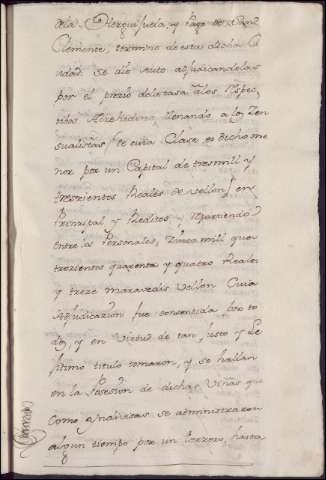 de la Herguijuela, y Pago de San
Clemente, termino de esta dicha Ciu
dad. Se dio auto adjudicandolas
por el precio de la tasa a los Respec
tibos Acrehedores, llenando a los Zen
sualistas (de cuia Clase es dicho me
nor por un Capital de tres mil y
trescientos Reales de vellon) en
Principal y Reditos y repartiendo
entre los Personales, Zinco mil qua
trozientos quarenta y quatro Reales
y treze maravedis vellon. Cuia
Adjudicazion fue consentida por to
dos, y en Virtud de tan justo y Le
xitimo titulo tomaron, y se hallan
en la Posesion de dichas Viñas que
como Yndivisas se administraron
algun tiempo por un terzero, hasta